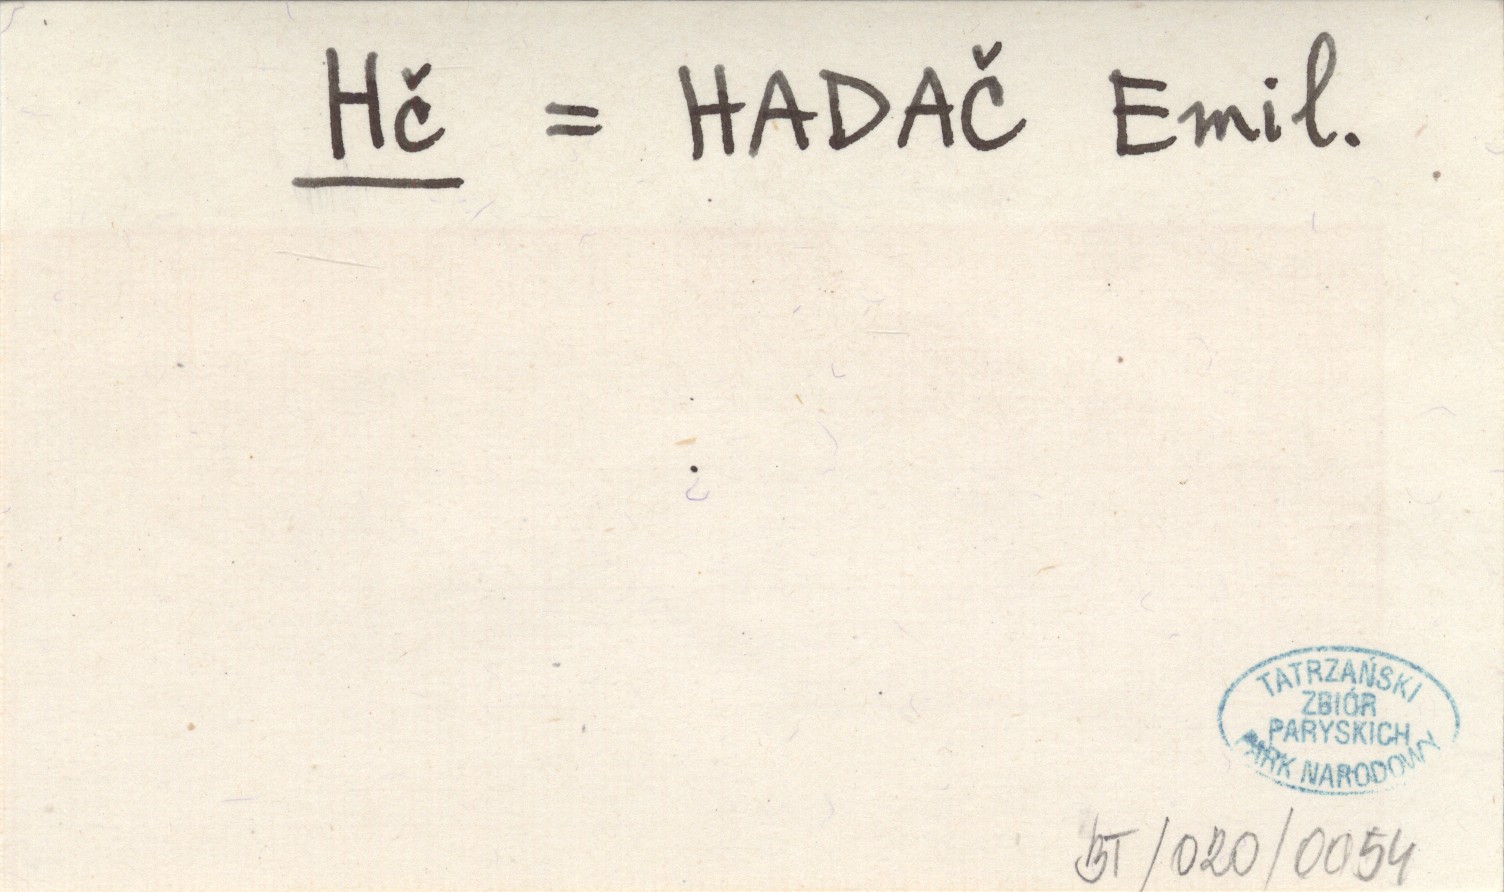 Hč = HADAČ Emil.
TATRZAŃSKI
ZBIÓR
PARYSKICH
PARK NARODOWY
BT/020/0054